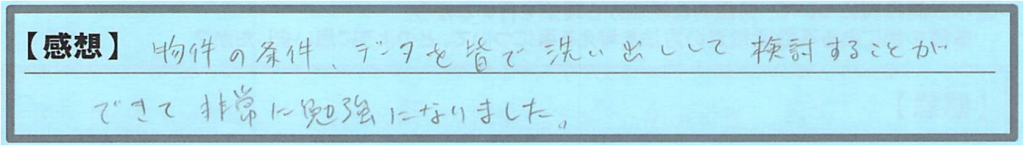 【感想】 物件の条件、データを皆で洗い出しして検討することが
できて非常に勉強になりました。